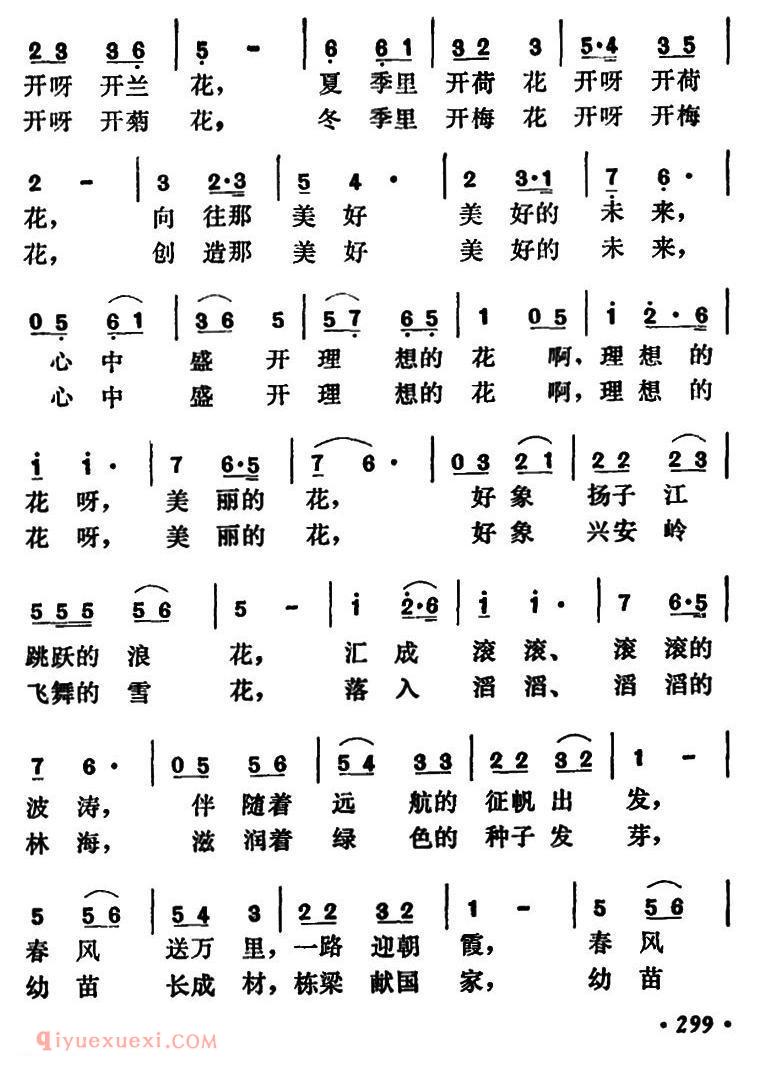 2 3 3 6 | 5 - | 6 6 1 | 3 2 3 | 5·4 3 5 |
开呀 开兰 花， 夏 季里 开荷 花 开呀 开荷
开呀 开菊 花， 冬 季里 开梅 花 开呀 开梅
2 - | 3 2·3 | 5 4 · | 2 3·1 | 7 6 · |
花， 向 往那 美 好 美 好的 未 来，
花， 创 造那 美 好 美 好的 未 来，
0 5 6 1 | 3 6 5 | 5 7 6 5 | 1 0 5 | i 2·6 |
心 中 盛 开 理 想的 花 啊，理 想 的
心 中 盛 开 理 想的 花 啊，理 想 的
i i · | 7 6·5 | 7 6 · | 0 3 2 1 | 2 2 2 3 |
花 呀， 美 丽的 花， 好 象 扬子 江
花 呀， 美 丽的 花， 好 象 兴安 岭
5 5 5 5 6 | 5 - | i 2·6 | i i · | 7 6·5 |
跳跃的 浪 花， 汇 成 滚 滚、 滚 滚的
飞舞的 雪 花， 落 入 滔 滔、 滔 滔的
7 6 · | 0 5 5 6 | 5 4 3 3 | 2 2 3 2 | 1 - |
波 涛， 伴 随着 远 航的 征帆 出 发，
林 海， 滋 润着 绿 色的 种子 发 芽，
5 5 6 | 5 4 3 | 2 2 3 2 | 1 - | 5 5 6 |
春 风 送万 里，一路 迎朝 霞， 春 风
幼 苗 长成 材，栋梁 献国 家， 幼 苗
·299·
qiyuexuexi.com